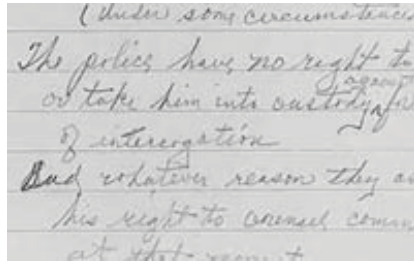 (Under some circumstance
The police have no right to
or take him into custody for
of interrogation
And whatever reason they a
his right to counsel comm
at that moment